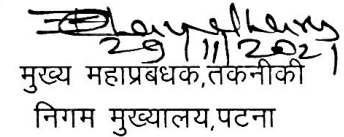 29/11/2021
मुख्य महाप्रबधक,तकनीकी
निगम मुख्यालय,पटना